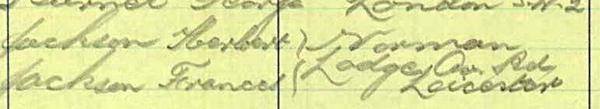 George London S.W.2
Jackson Herbert } Norman
Jackson Frances { Lodge, Av. Rd
Leicester